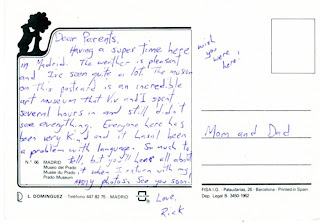 Dear Parents,
Having a super time here
in Madrid. The weather is pleasant
and I've seen quite a lot. The museum
on this postcard is an incredible
art museum that Viv and I spent
several hours in and still didn't
see everything. Everyone here has
been very kind and it hasn't been
a problem with language. So much to
tell, but you'll hear all about
it when I return with my
many photos. See you soon.
Love,
Rick
wish
you
were
here!
Mom and Dad
N.º 06 MADRID
Museo del Prado
Musée du Prado
Prado Museum
L. DOMINGUEZ Teléfono 447 82 75 MADRID
FISA I.G. - Palaudarias, 26 - Barcelona - Printed in Spain
Dep. Legal B. 3450 1962